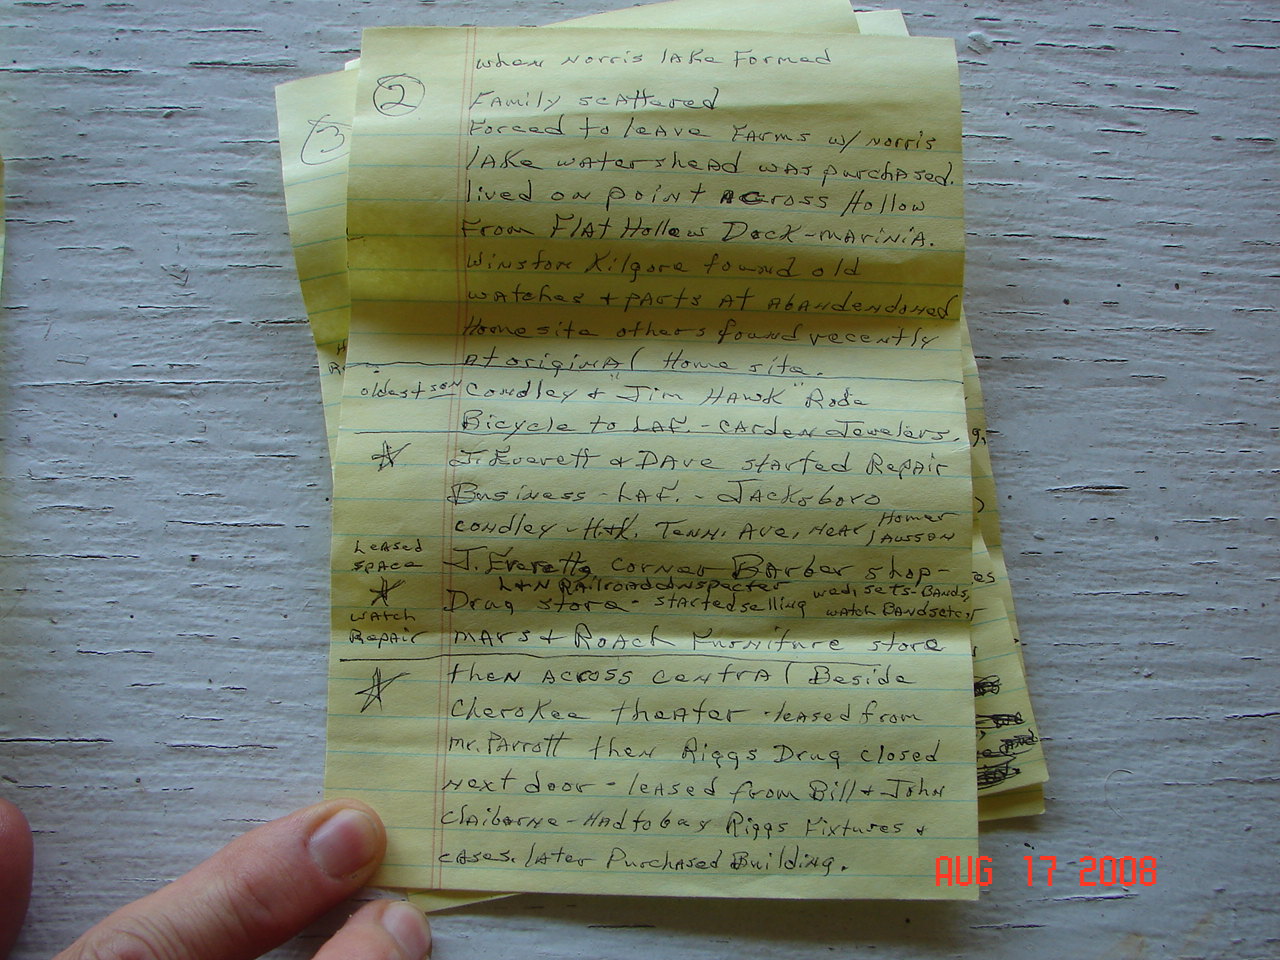 when Norris lake Formed
②
Family scattered
Forced to leave Farms w/ Norris
lake watershead was purchased.
lived on point across Hollow
From Flat Hollow Dock-marinia.
Winston Kilgore found old
watches + parts at abandendoned
Home site others found recently
at original Home site.
oldest son Condley & "Jim Hawk" Rode
Bicycle to LaF. - Carden Jewelers.
☆ J. Everett & Dave started Repair
Business - LaF. - Jacksboro
Condley - Tenn. Ave, near Homer Lawson
Leased space
J. Everett corner Barber shop-
L&N Railroad Inspecter wed, sets-Bands,
☆ Drug store - started selling watch Bands etc,
watch Repair
Mars & Roach Furniture store
☆ then across central Beside
Cherokee theater - leased from
Mr. Parrott then Riggs Drug closed
next door - leased from Bill & John
Claiborne - Had to buy Riggs Fixtures &
cases. later Purchased Building.
③
AUG 17 2008